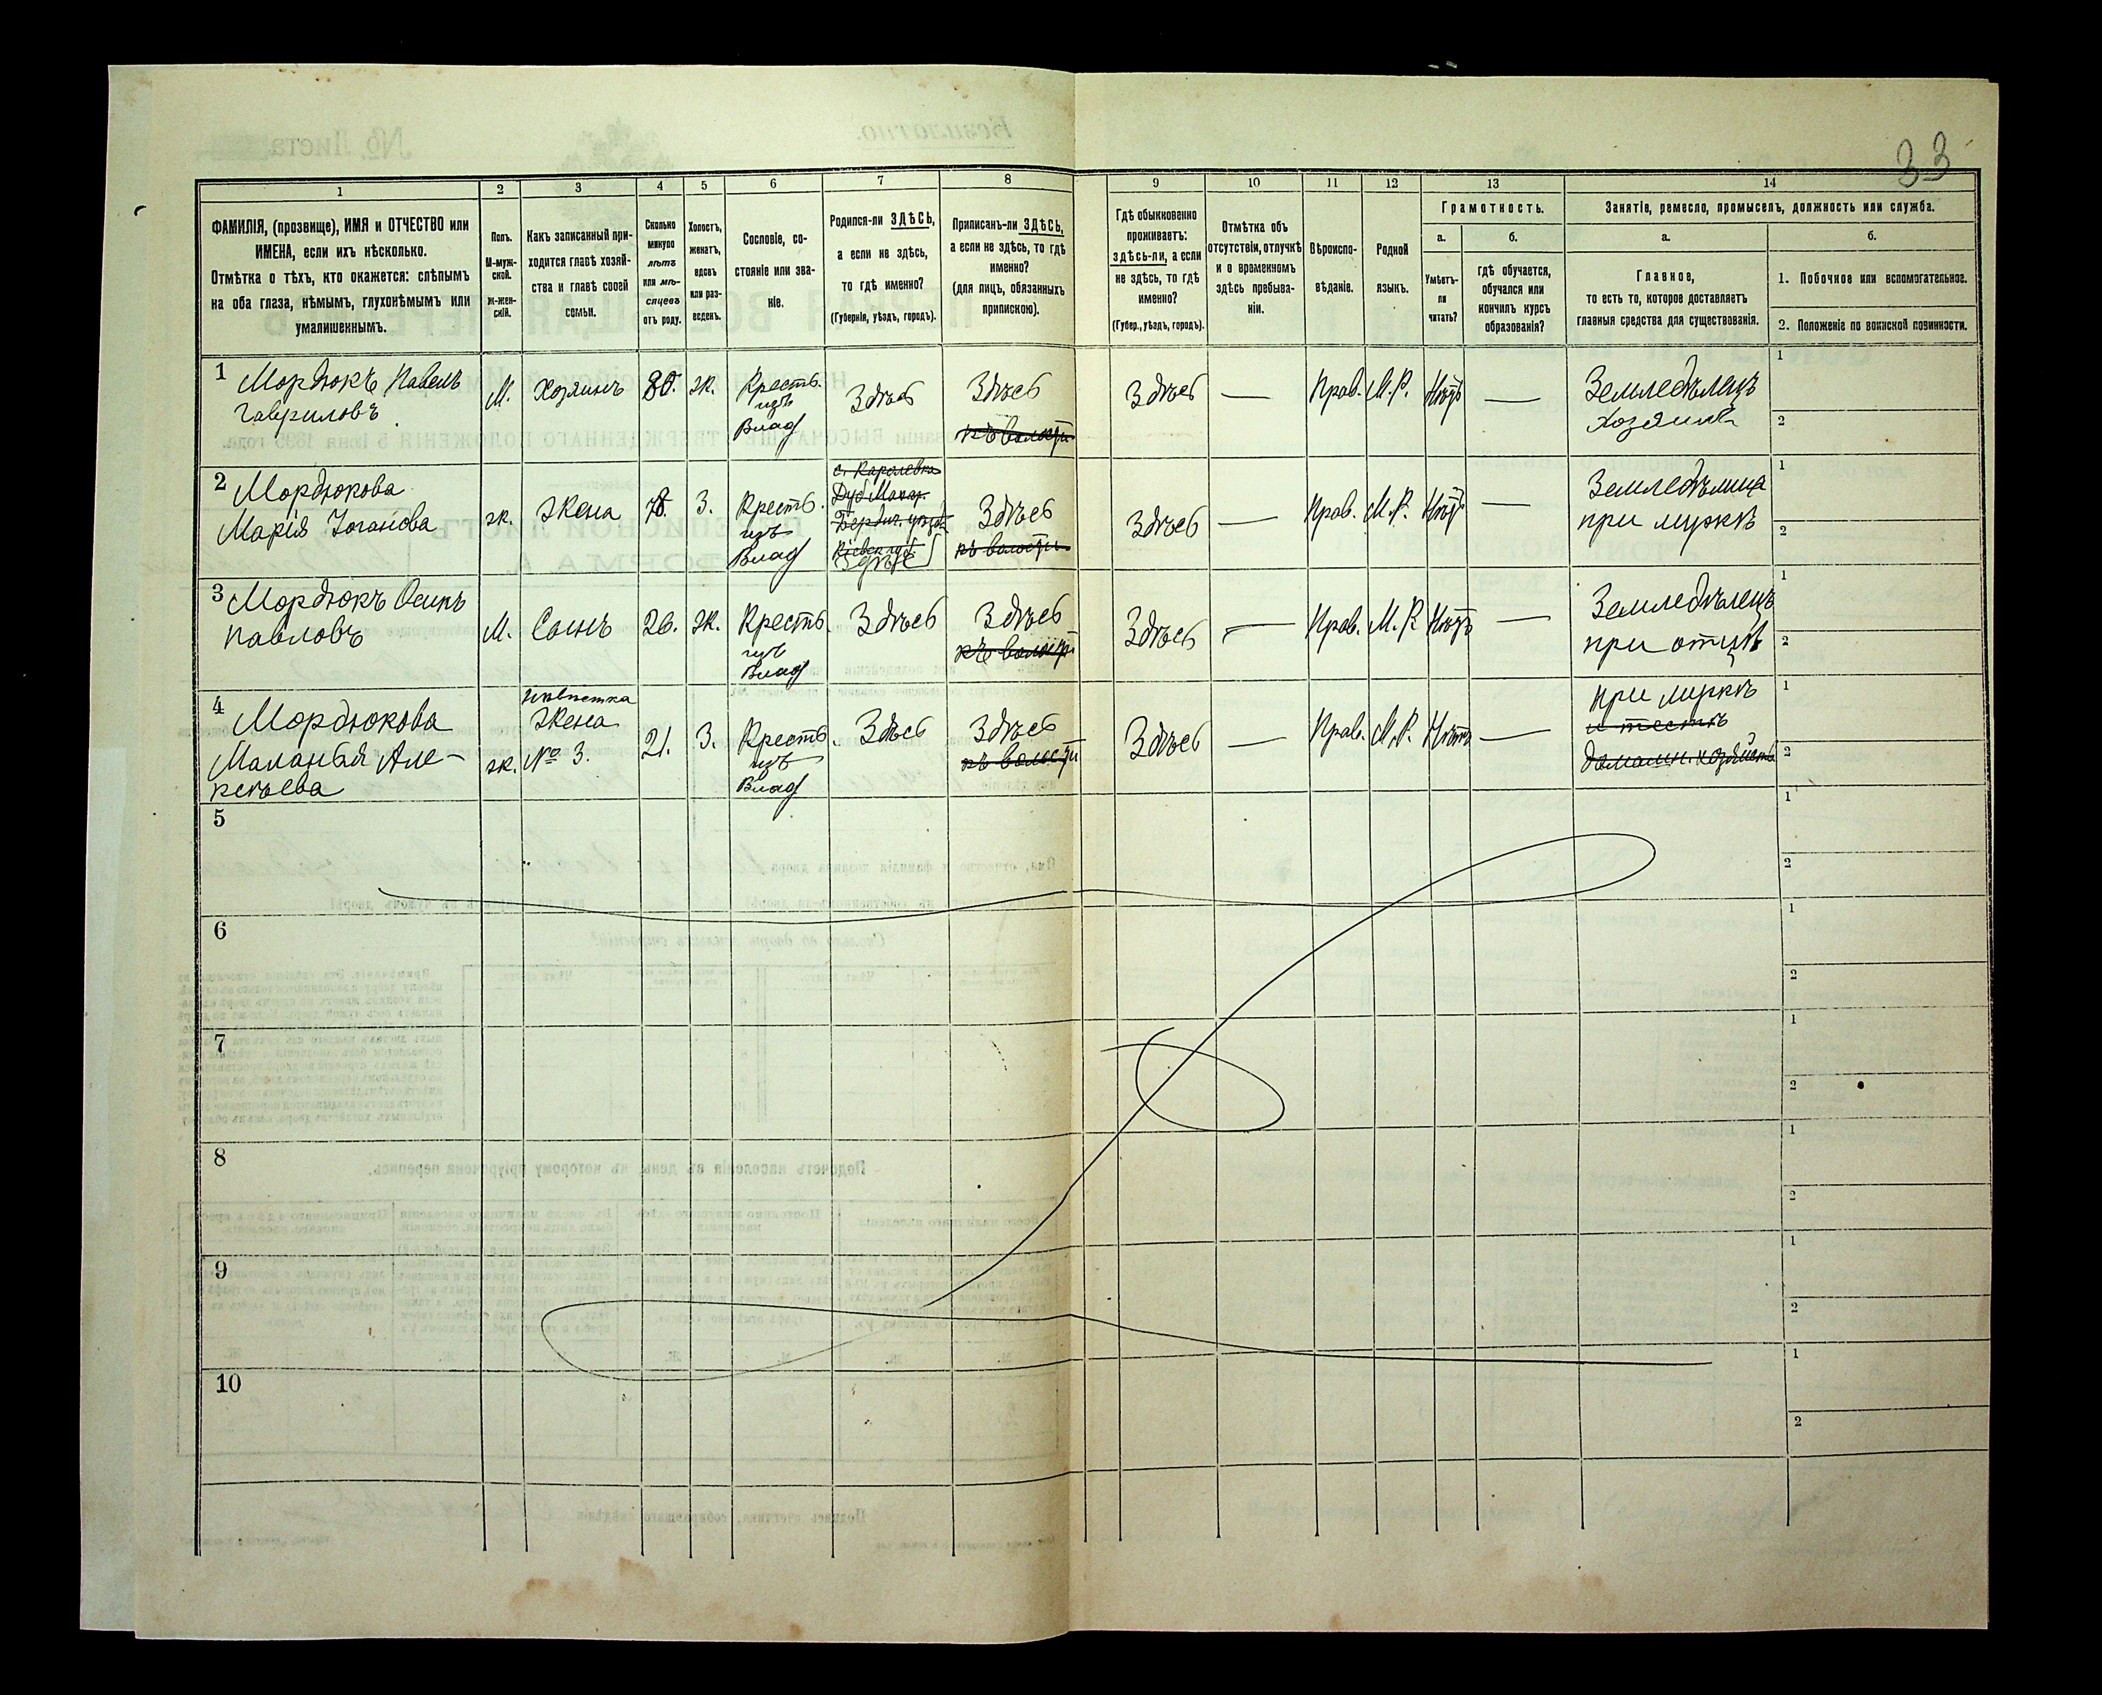 33
1 2 3 4 5 6 7 8 9 10 11 12 13 14
ФАМИЛІЯ, (прозвище), ИМЯ и ОТЧЕСТВО или
ИМЕНА, если ихъ нѣсколько.
Отмѣтка о тѣхъ, кто окажется: слѣпымъ
на оба глаза, нѣмымъ, глухонѣмымъ или
умалишеннымъ.
Полъ.
М-муж-
ской.
Ж-жен-
скій.
Какъ записанный при-
ходится главѣ хозяй-
ства и главѣ своей
семьи.
Сколько
минуло
лѣтъ
или мѣ-
сяцевъ
отъ роду.
Холостъ,
женатъ,
вдовъ
или раз-
веденъ.
Сословіе, со-
стояніе или зва-
ніе.
Родился-ли ЗДѢСЬ,
а если не здѣсь,
то гдѣ именно?
(Губернія, уѣздъ, городъ).
Приписанъ-ли ЗДѢСЬ,
а если не здѣсь, то гдѣ
именно?
(для лицъ, обязанныхъ
припискою).
Гдѣ обыкновенно
проживаетъ:
здѣсь-ли, а если
не здѣсь, то гдѣ
именно?
(Губер., уѣздъ, городъ).
Отмѣтка объ
отсутствіи, отлучкѣ
и о временномъ
здѣсь пребыва-
ніи.
Вѣроиспо-
вѣданіе.
Родной
языкъ.
Грамотность.
а.
Умѣетъ-
ли
читать?
б.
гдѣ обучается,
обучался или
кончилъ курсъ
образованія?
Занятіе, ремесло, промыселъ, должность или служба.
а.
Главное,
то есть то, которое доставляетъ
главныя средства для существованія.
б.
1. Побочное или вспомогательное.
2. Положеніе по воинской повинности.
1
Мордюкъ Павелъ
Гавриловъ
М.
Хозяинъ
ж.
Крестъ.
изъ
Влад
Здѣсь
Здѣсь
къ волости
Здѣсь
—
Прав.
М.Р.
Нѣтъ
—
Земледѣлецъ
Хозяинъ
1
2
2
Мордюкова
Марія
ж.
Жена
З.
Крестъ.
изъ
Влад
Здѣсь
Здѣсь
къ волости
Здѣсь
—
Прав.
М.Р.
Нѣтъ
—
Земледѣлица
при мужѣ
1
2
3
Мордюкъ Осипъ
Павловъ
М.
Сынъ
26.
ж.
Крестъ.
изъ
Влад
Здѣсь
Здѣсь
къ волости
Здѣсь
—
Прав.
М.Р
Нѣтъ
—
Земледѣлецъ
при отцѣ
1
2
4
Мордюкова
Маланья Але-
ксѣева
ж.
невѣстка
Жена
№ 3.
21.
З.
Крестъ.
изъ
Влад
Здѣсь
Здѣсь
къ волости
Здѣсь
—
Прав.
М.Р.
Нѣтъ
—
при мужѣ
1
2
5
1
2
6
1
2
7
1
2
8
1
2
9
1
2
10
1
2